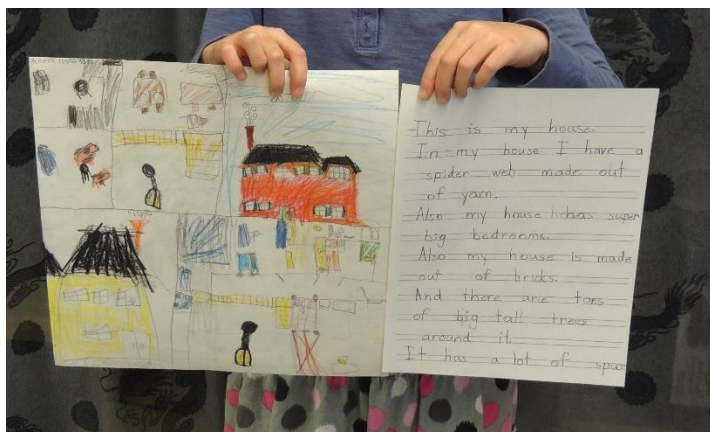 This is my house.
In my house I have a
spider web made out
of yarn.
Also my house has super
big bedrooms.
Also my house is made
out of bricks.
And there are tons
of big tall trees
around it.
It has a lot of space